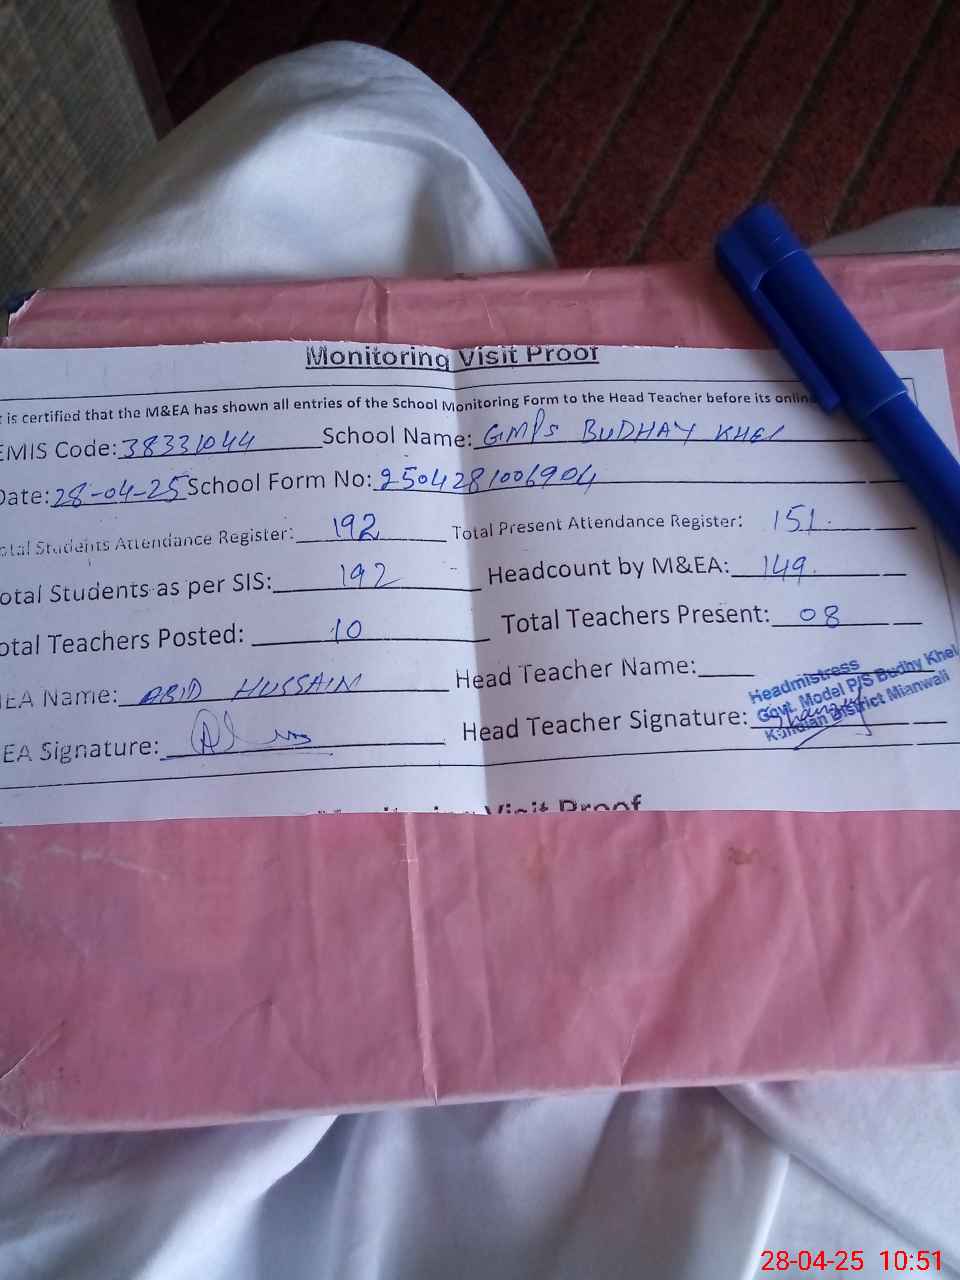 Monitoring Visit Proof
t is certified that the M&EA has shown all entries of the School Monitoring Form to the Head Teacher before its onlin
EMIS Code: 38331044 School Name: GMPS BUDHAY KHEL
Date: 28-04-25 School Form No: 2504281006904
otal Students Attendance Register: 192 Total Present Attendance Register: 151.
otal Students as per SIS: 192 Headcount by M&EA: 149.
otal Teachers Posted: 10 Total Teachers Present: 08
EA Name: ABID HUSSAIN Head Teacher Name:
EA Signature: Head Teacher Signature:
Headmistress
Govt. Model P/S Budhy Khel
Kundian District Mianwali
Monitoring Visit Proof
28-04-25 10:51